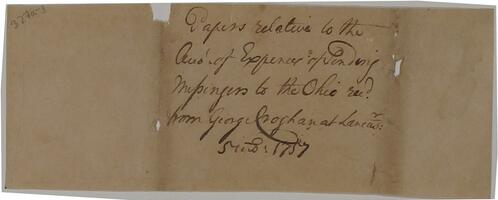 Papers relative to the
Acco.t of Expences of Sending
Messingers to the Ohio rec.d
from George Croghan at Lancas.r
1757